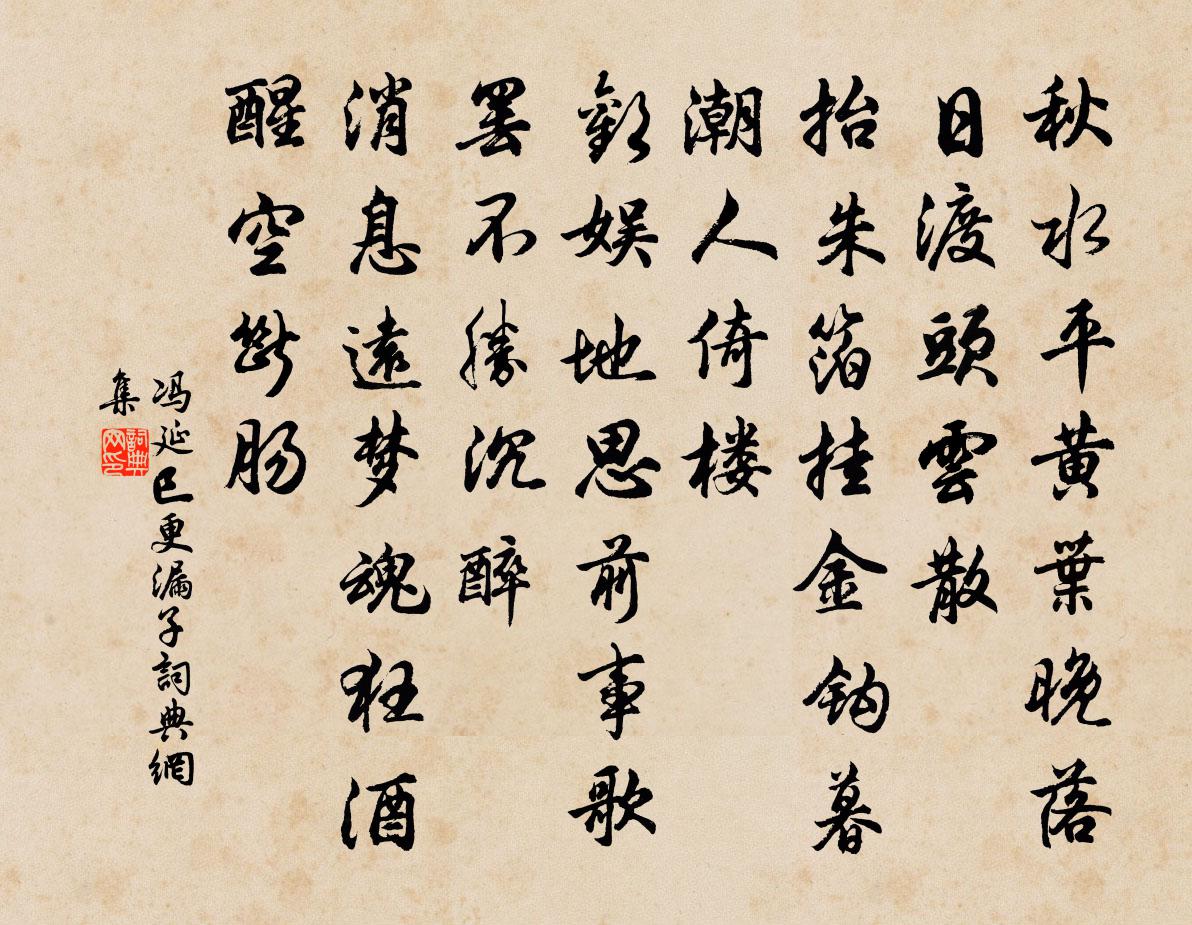 秋水平黄葉晚落
日渡頭雲散
抬朱箔挂金鈎暮
潮人倚楼
歡娱地思前事歌
罢不勝沉醉
消息遠梦魂狂酒
醒空断肠
冯延巳更漏子詞典網
集
詞典网印